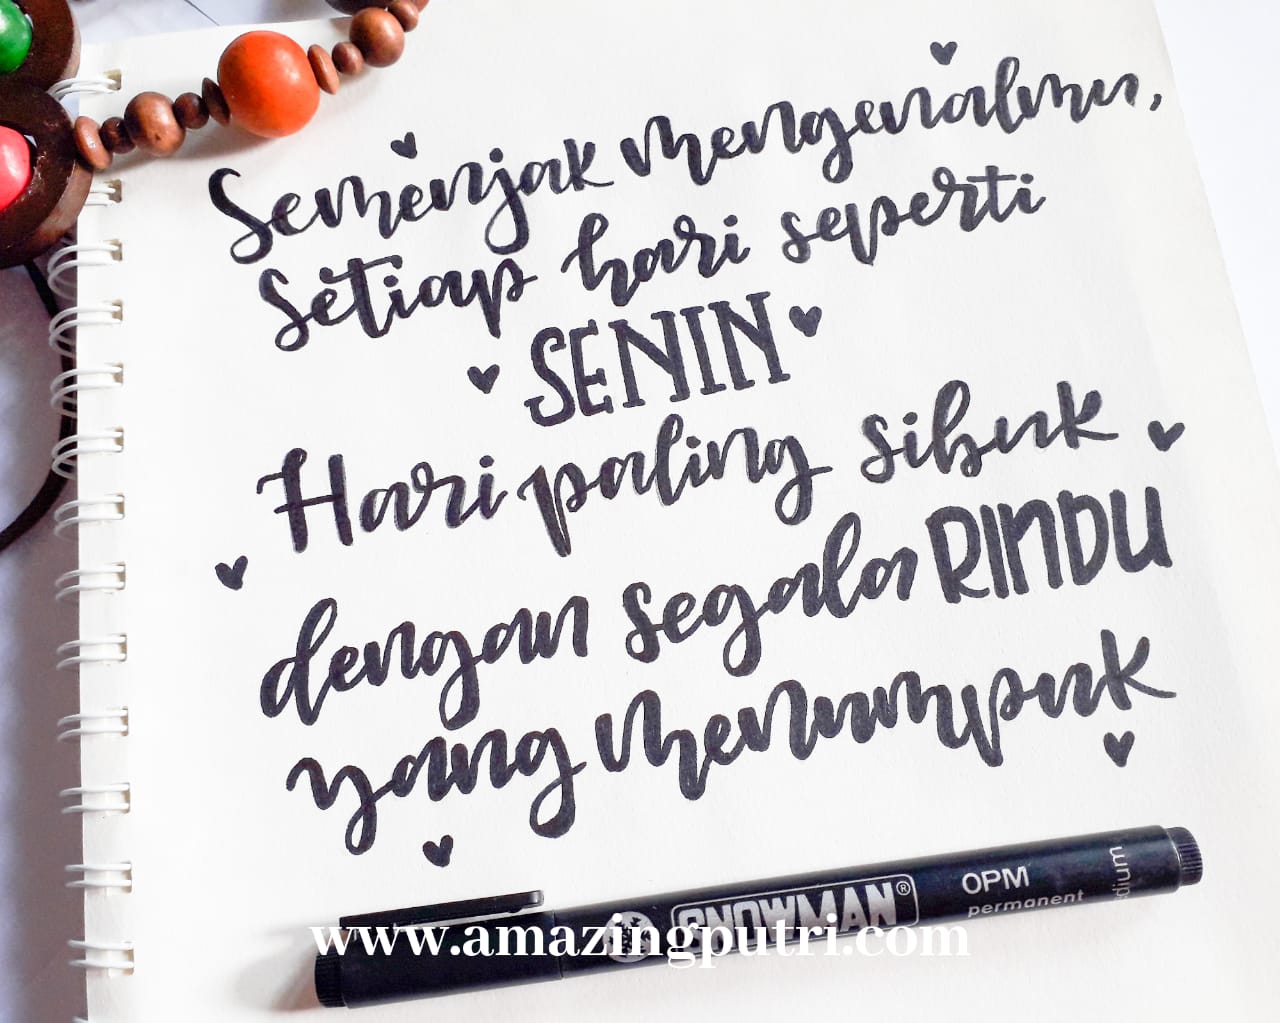 Semenjak mengenalmu,
Setiap hari seperti
SENIN
Hari paling sibuk
dengan segala RINDU
yang menumpuk
SNOWMAN® OPM
permanent
www.amazingputri.com